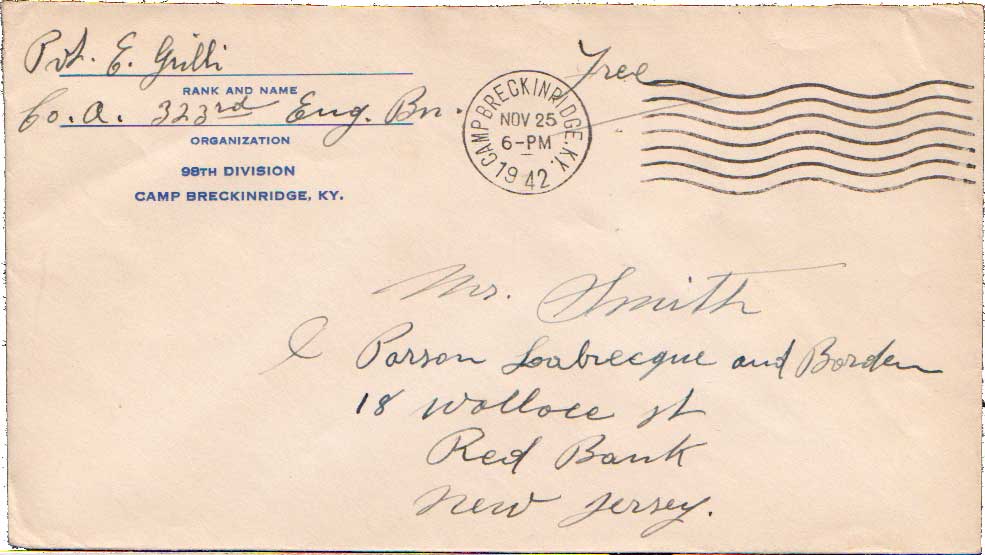 Pvt. E. Grilli
RANK AND NAME
Co. A. 323rd Eng. Bn.
ORGANIZATION
98TH DIVISION
CAMP BRECKINRIDGE, KY.
Free
CAMP BRECKINRIDGE, KY.
NOV 25
6-PM
1942
Mr. Smith
Parson Labrecque and Borden
18 Wallace st
Red Bank
New Jersey.